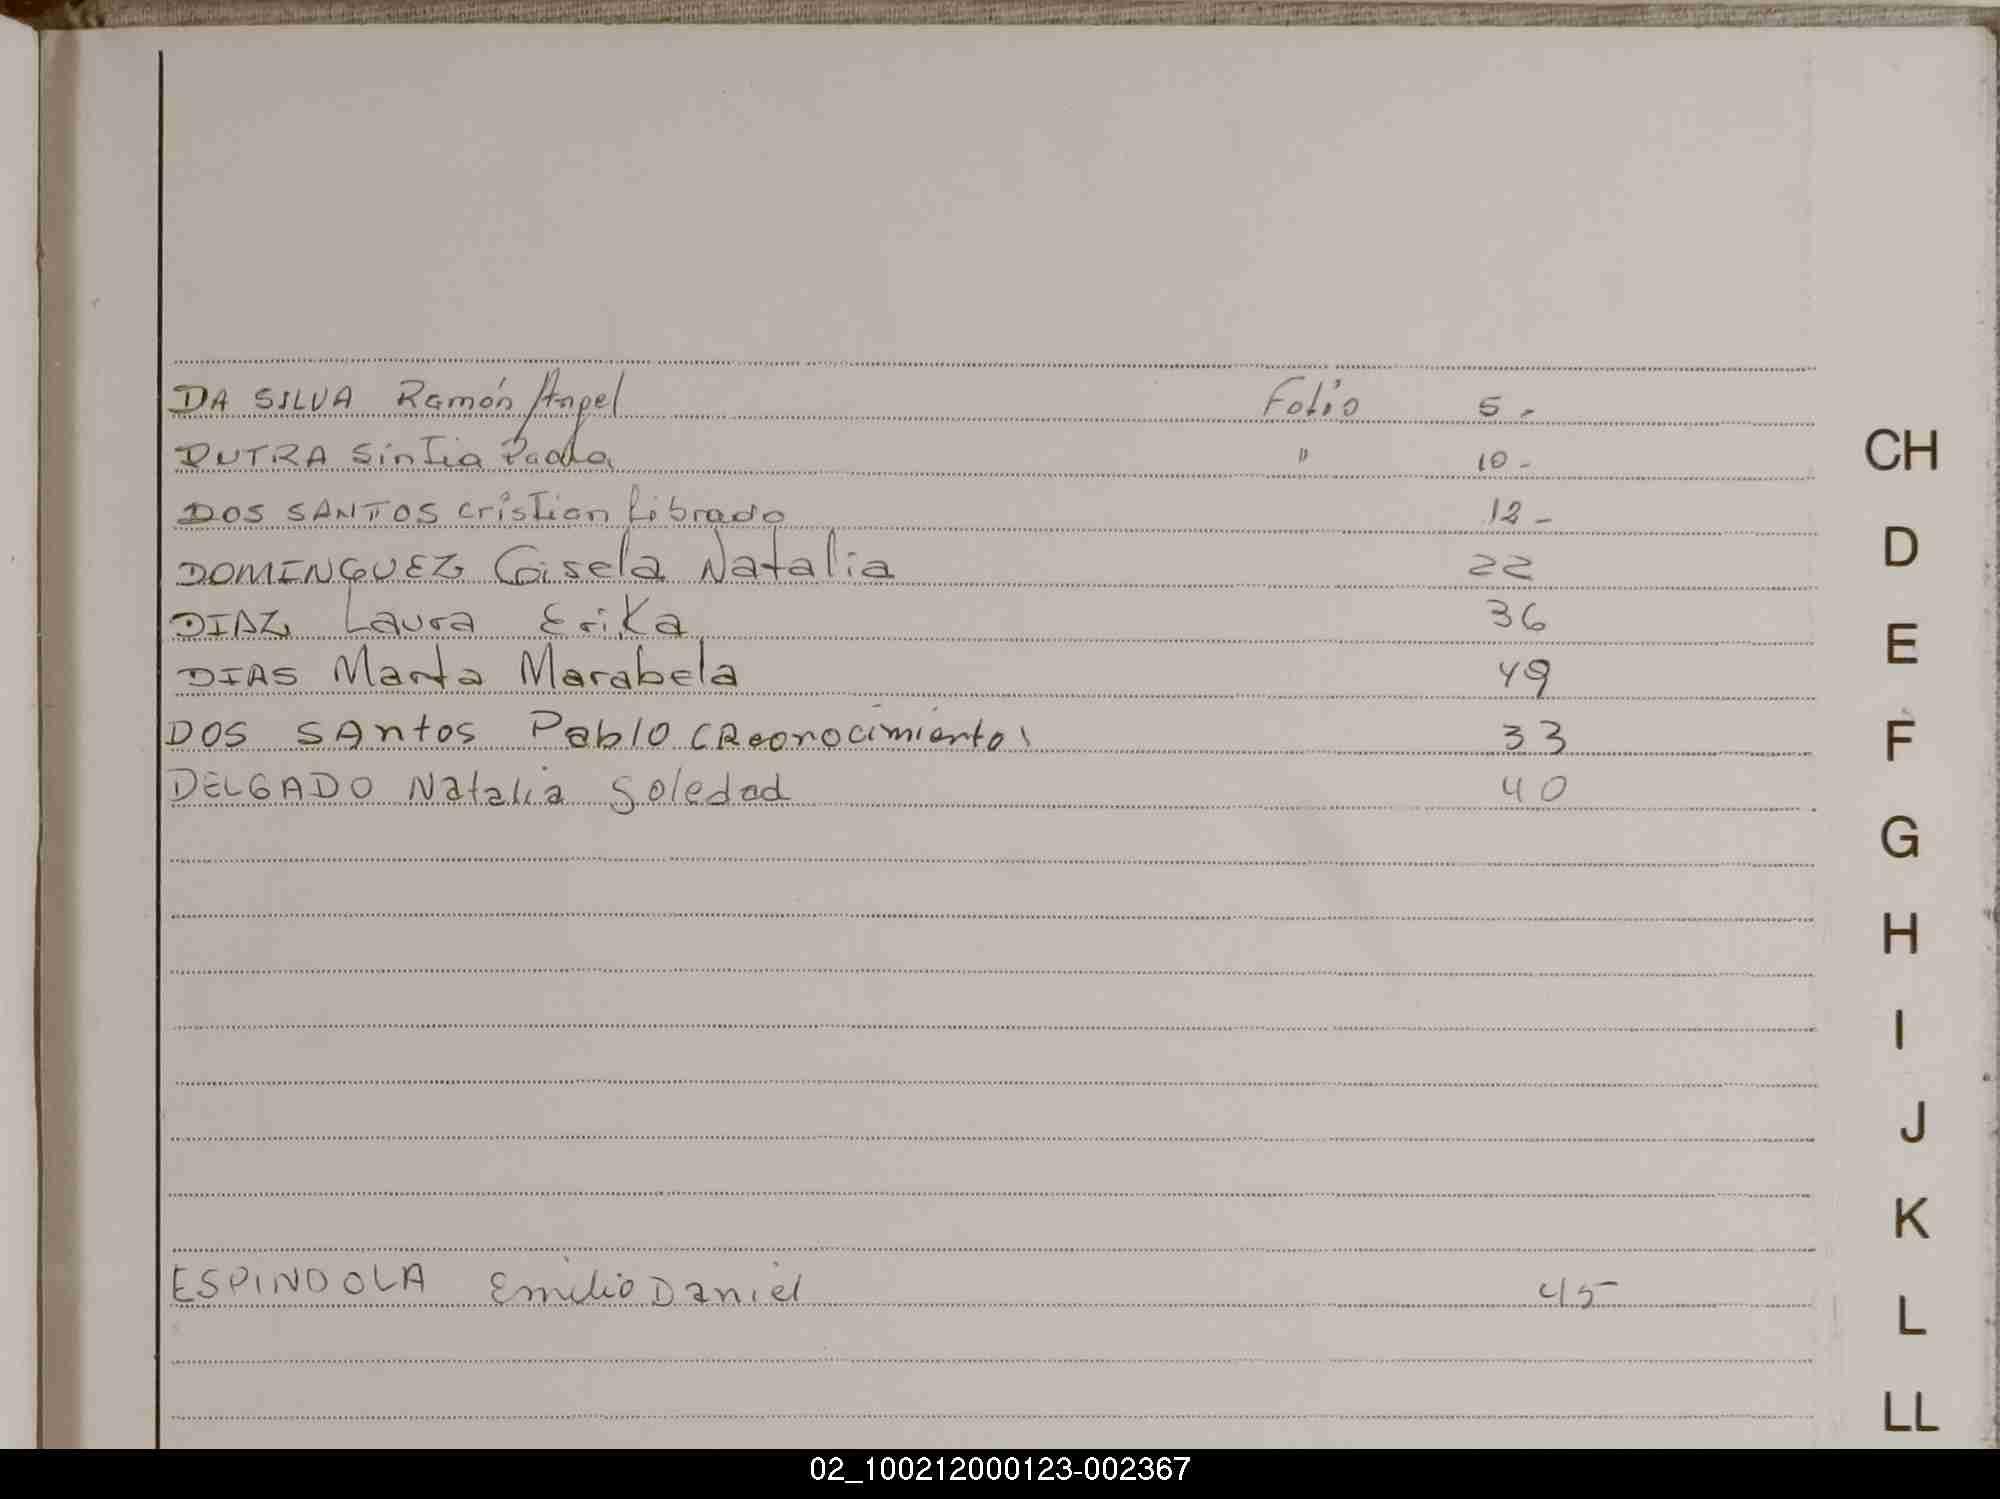 DA SILVA Ramón Angel Folio 5.-
DUTRA Sintia Paola " 10-
DOS SANTOS Cristian Librado 12-
DOMINGUEZ Gisela Natalia 22
DIAZ Laura Erika 36
DIAS Marta Marabela 49
DOS SAntos Pablo (Reconocimiento) 33
DELGADO Natalia Soledad 40
ESPINDOLA Emilio Daniel 45
CH
D
E
F
G
H
I
J
K
L
LL
02_100212000123-002367